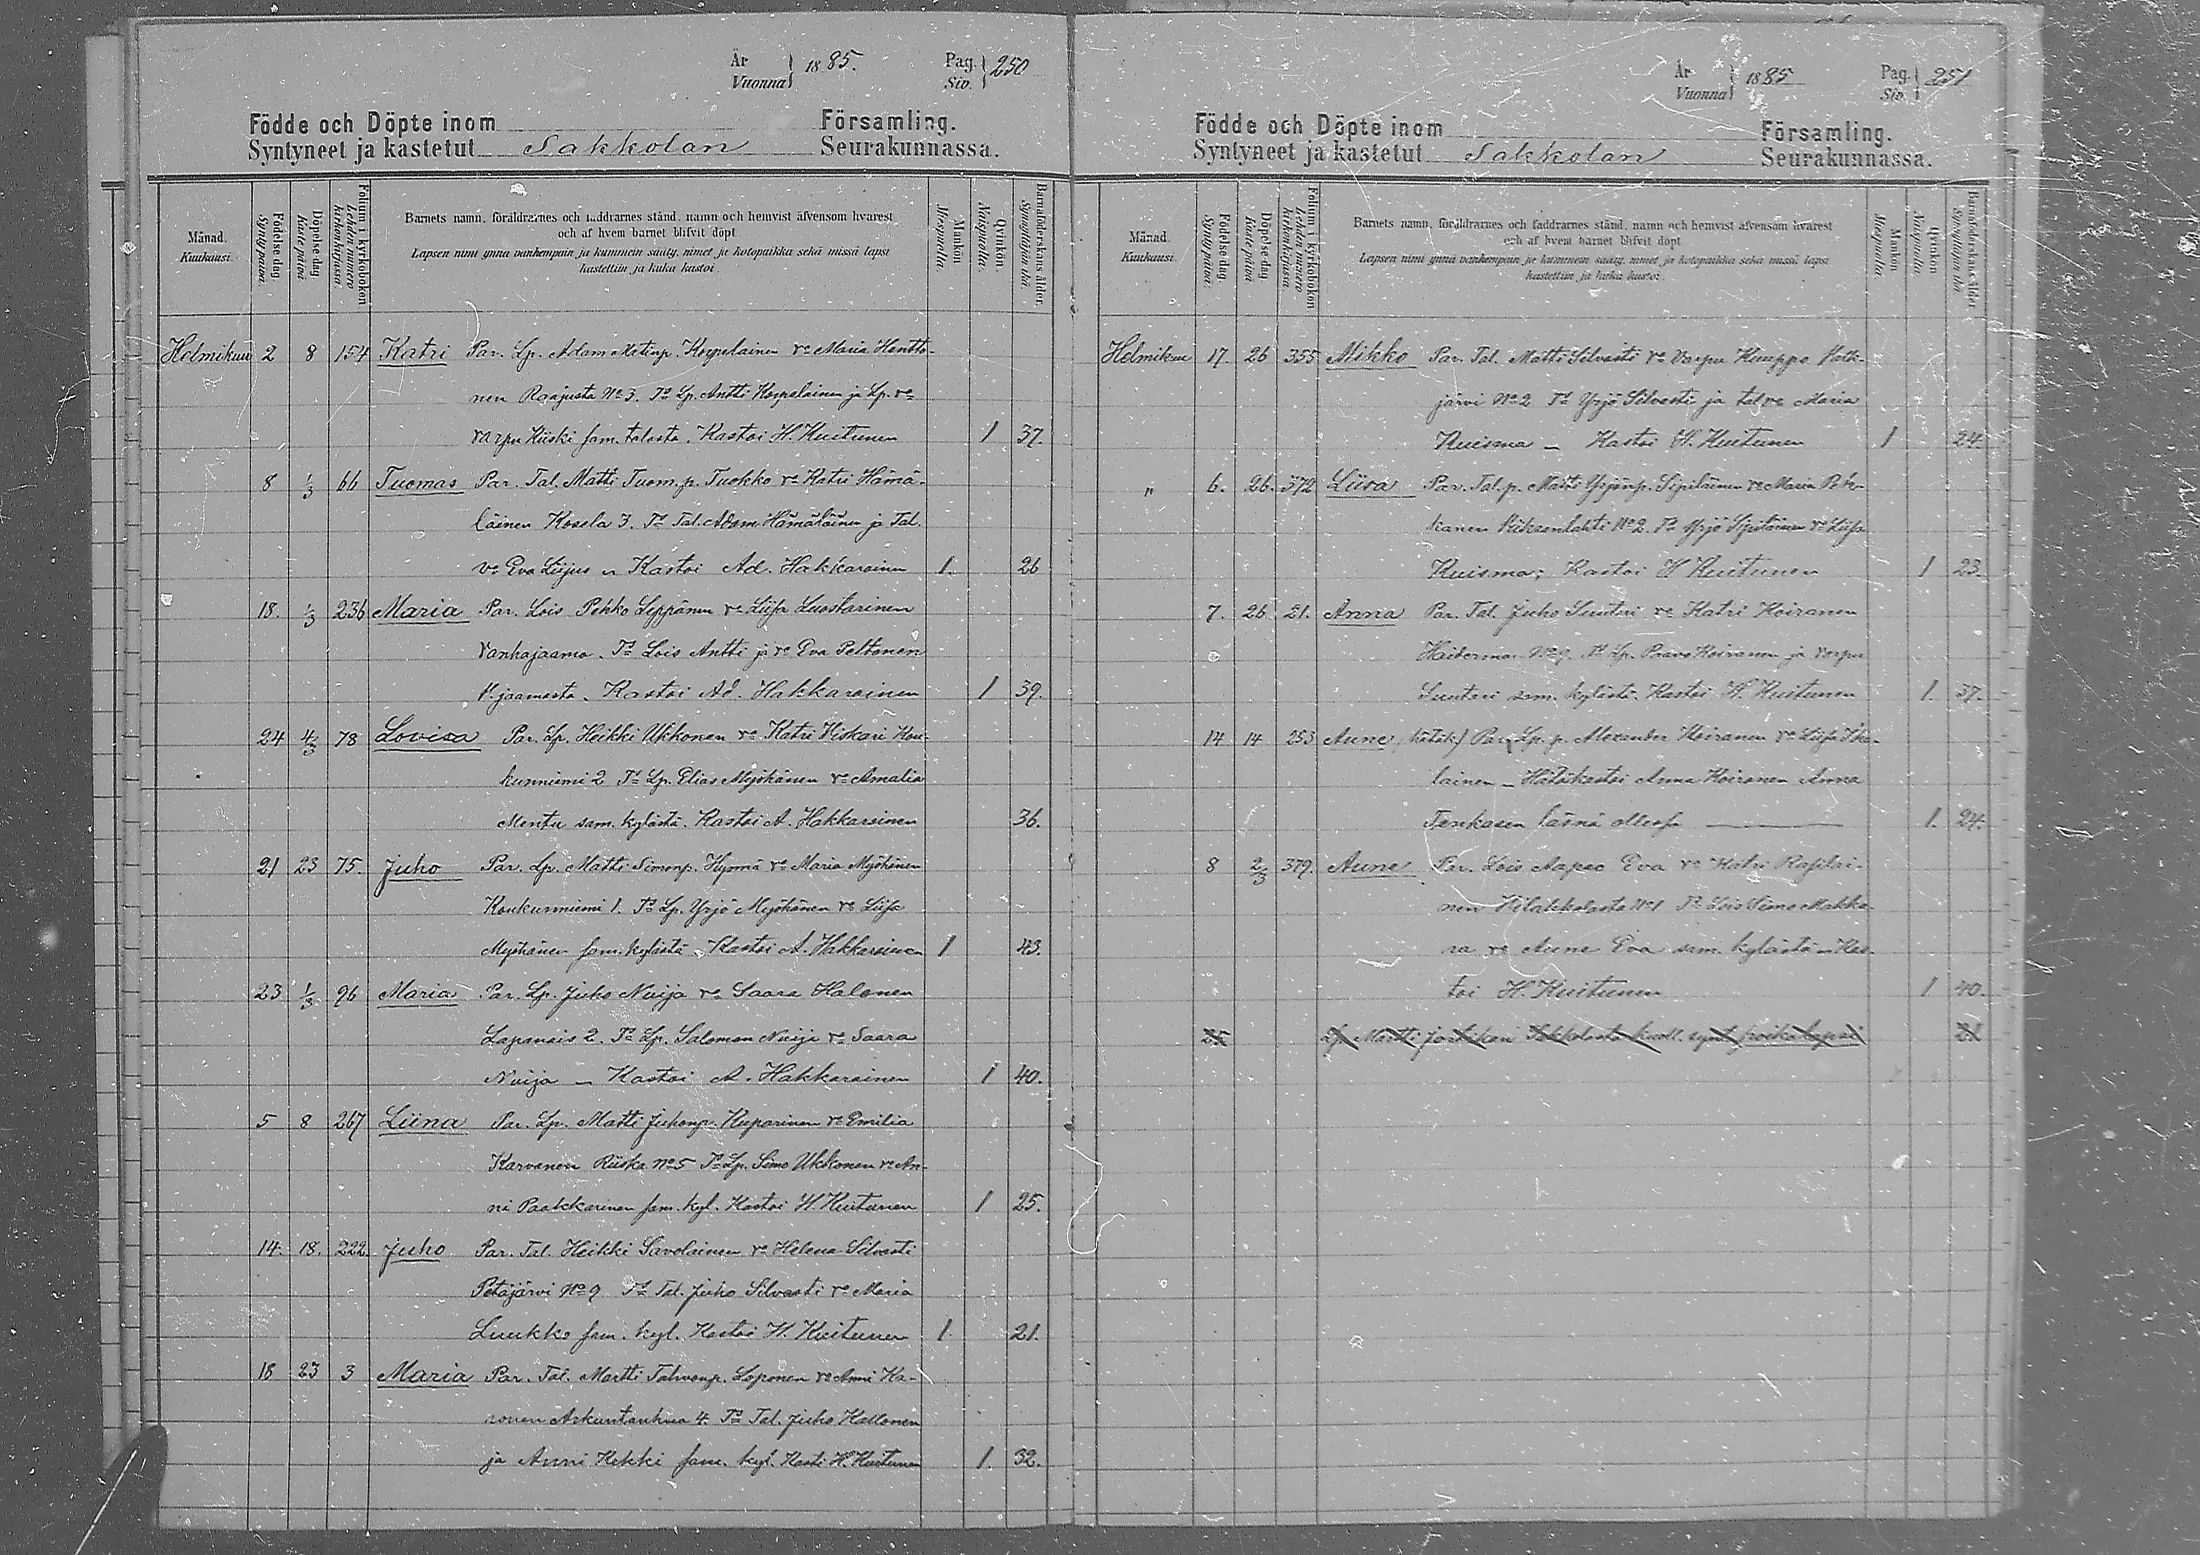 År
Vuonna } 1885.
Pag.
Siv. } 250
Födde och Döpte inom Församling.
Syntyneet ja kastetut Sakkolan Seurakunnassa.
Månad.
Kuukausi.
Födelse dag.
Syntypäivä.
Döpelse dag.
Kastepäivä
Folium i kyrkoboken
Lehden numero kirkonkirjassa
Barnets namn, föräldrarnes och faddrarnes stånd, namn och hemvist äfvensom hvarest
och af hvem barnet blifvit döpt
Lapsen nimi ynnä vanhempain ja kummein sääty, nimet ja kotopaikka sekä missä lapsi
kastettiin ja kuka kastoi.
Mankön
Miespuolia.
Qvinkön.
Naispuolia.
Barnaföderskans ålder.
Synnyttäjän ikä.
Helmikuu 2 8 154 Katri Par. Lp. Adam Matinp. Korpelainen vo Maria Hantto-
nen Raajusta No 3. To Lp. Antti Korpelainen ja Lp. vo
Varpu Kiiski sam. talosta. Kastoi H. Kuitunen 1 37.
8 1/3 66 Tuomas Par. Tal. Matti Tuom.p. Tuokko vo Katri Hämä-
läinen Kosela 3. To Tal. Adam Hämäläinen ja Tal.
vo Eva Liijus – Kastoi Ad. Hakkarainen 1. 26
18. 1/3 236 Maria Par. Lois Pekko Leppänen vo Liisa Luostarinen
Vanhajaama. To Lois Antti ja vo Eva Peltonen
V.jaamasta. Kastoi Ad. Hakkarainen 1 39.
24 4/3 78 Lovisa Par. Lp. Heikki Ukkonen vo Katri Kiskari Kou-
kunniemi 2 To Lp. Elias Myöhänen vo Amalia
Mentu sam. kylästä. Kastoi A. Hakkarainen 36.
21 23 75. Juho Par. Lp. Matti Simonp. Hyvmä vo Maria Myöhänen
Koukunniemi 1. To Lp. Yrjö Myöhänen vo Liisa
Myöhänen sam. kylästä. Kastoi A. Hakkarainen 1 43.
23 1/3 96 Maria Par. Lp. Juho Nuija vo Saara Halonen
Lapanais 2. To Lp. Salomon Nuija vo Saara
Nuija – Kastoi A. Hakkarainen 1 40.
5 8 267 Liina Par. Lp. Matti Juhonp. Kuparinen vo Emilia
Karvanen Riiska No 5 To Lp. Simo Ukkonen vo An-
ni Paakkarinen sam. kyl. Kastoi H. Kuitunen 1 25.
14. 18. 222. Juho Par. Tal. Heikki Savolainen vo Helena Silvasti
Petäjärvi No 9 To Tal. Juho Silvasti vo Maria
Luukko sam. kyl. Kastoi H. Kuitunen 1. 21.
18 23 3 Maria Par. Tal. Martti Tahvonp. Loponen vo Anni Ka-
ronen Arkuntanhua 4. To Tal. Juho Kallonen
ja Anni Hekki sam. kyl. Kasti H. Kuitunen 1. 32.
År
Vuonna } 1885
Pag.
Siv. } 251
Födde och Döpte inom Församling.
Syntyneet ja kastetut Sakkolan Seurakunnassa.
Månad.
Kuukausi.
Födelse dag.
Syntypäivä.
Döpelse dag.
Kastepäivä
Folium i kyrkoboken
Lehden numero kirkonkirjassa
Barnets namn, föräldrarnes och faddrarnes stånd, namn och hemvist äfvensom hvarest
och af hvem barnet blifvit döpt
Lapsen nimi ynnä vanhempain ja kummein sääty, nimet ja kotopaikka sekä missä lapsi
kastettiin ja kuka kastoi.
Mankön
Miespuolia.
Qvinkön
Naispuolia
Barnaföderskans ålder
Synnyttäjän ikä
Helmikuu 17. 26 355 Mikko Par. Tal. Matti Silvasti vo Varpu Kauppo Valk-
järvi No 2 To Yrjö Silvasti ja tal vo Maria
Kuisma – Kastoi H. Kuitunen 1 24.
" 6. 26. 372 Liisa Par. Tal.p. Matti Yrjönp. Sipiläinen vo Maria Pek-
kanen Viiksanlahti No 2. To Yrjö Sipiläinen vo Liisa
Kuisma; Kastoi H Kuitunen 1 23.
7. 26 21. Anna Par. Tal. Juho Suuteri vo Katri Koiranen
Haiterma No 9. To Lp. Paavo Koiranen ja Varpu
Suuteri sam. kylästä. Kastoi H. Kuitunen 1. 37.
14 14 253 Aune (hätäk.) Par. Lp. p. Alexander Koiranen vo Liisa
lainen – Hätäkastoi Anna Koiranen Anna
Tenkasen läsnä ollessa 1. 24.
8 2/3 379. Aune Par. Lois Aapeo Eva vo Katri Rassilai-
nen Kylakkolasta No 1 To Lois Simo Makka-
ra vo Aune Eva sam. kylästä – Kas-
toi H. Kuitunen 1 40.
25 Lp. Martti ja Sakkolasta kuoll. synt. poika lapsi 21